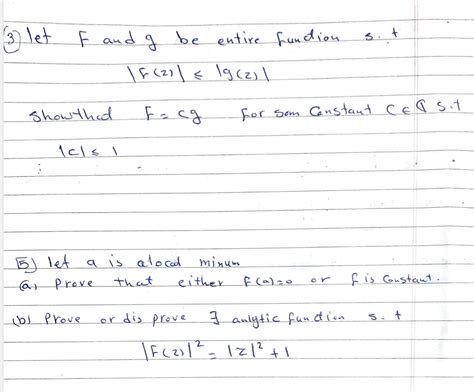 ③ let F and g be entire fundion s.t
|F(z)| ≤ |g(z)|
showthad F = cg for som Constant C ∈ ℂ s.t
|c| ≤ 1
5) let a is alocal minum
(a) Prove that either F(a)=0 or f is Constant.
(b) Prove or dis prove ∃ anlytic fundion s.t
|F(z)|² = |z|² + 1